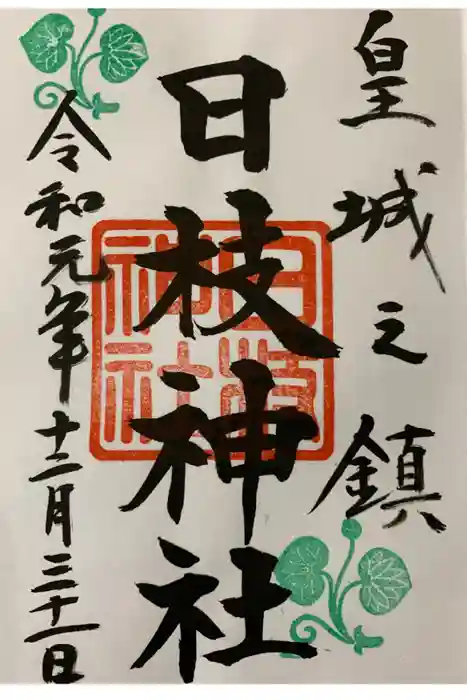 皇城之鎮
日枝神社
令和元年十二月三十一日
日枝神社